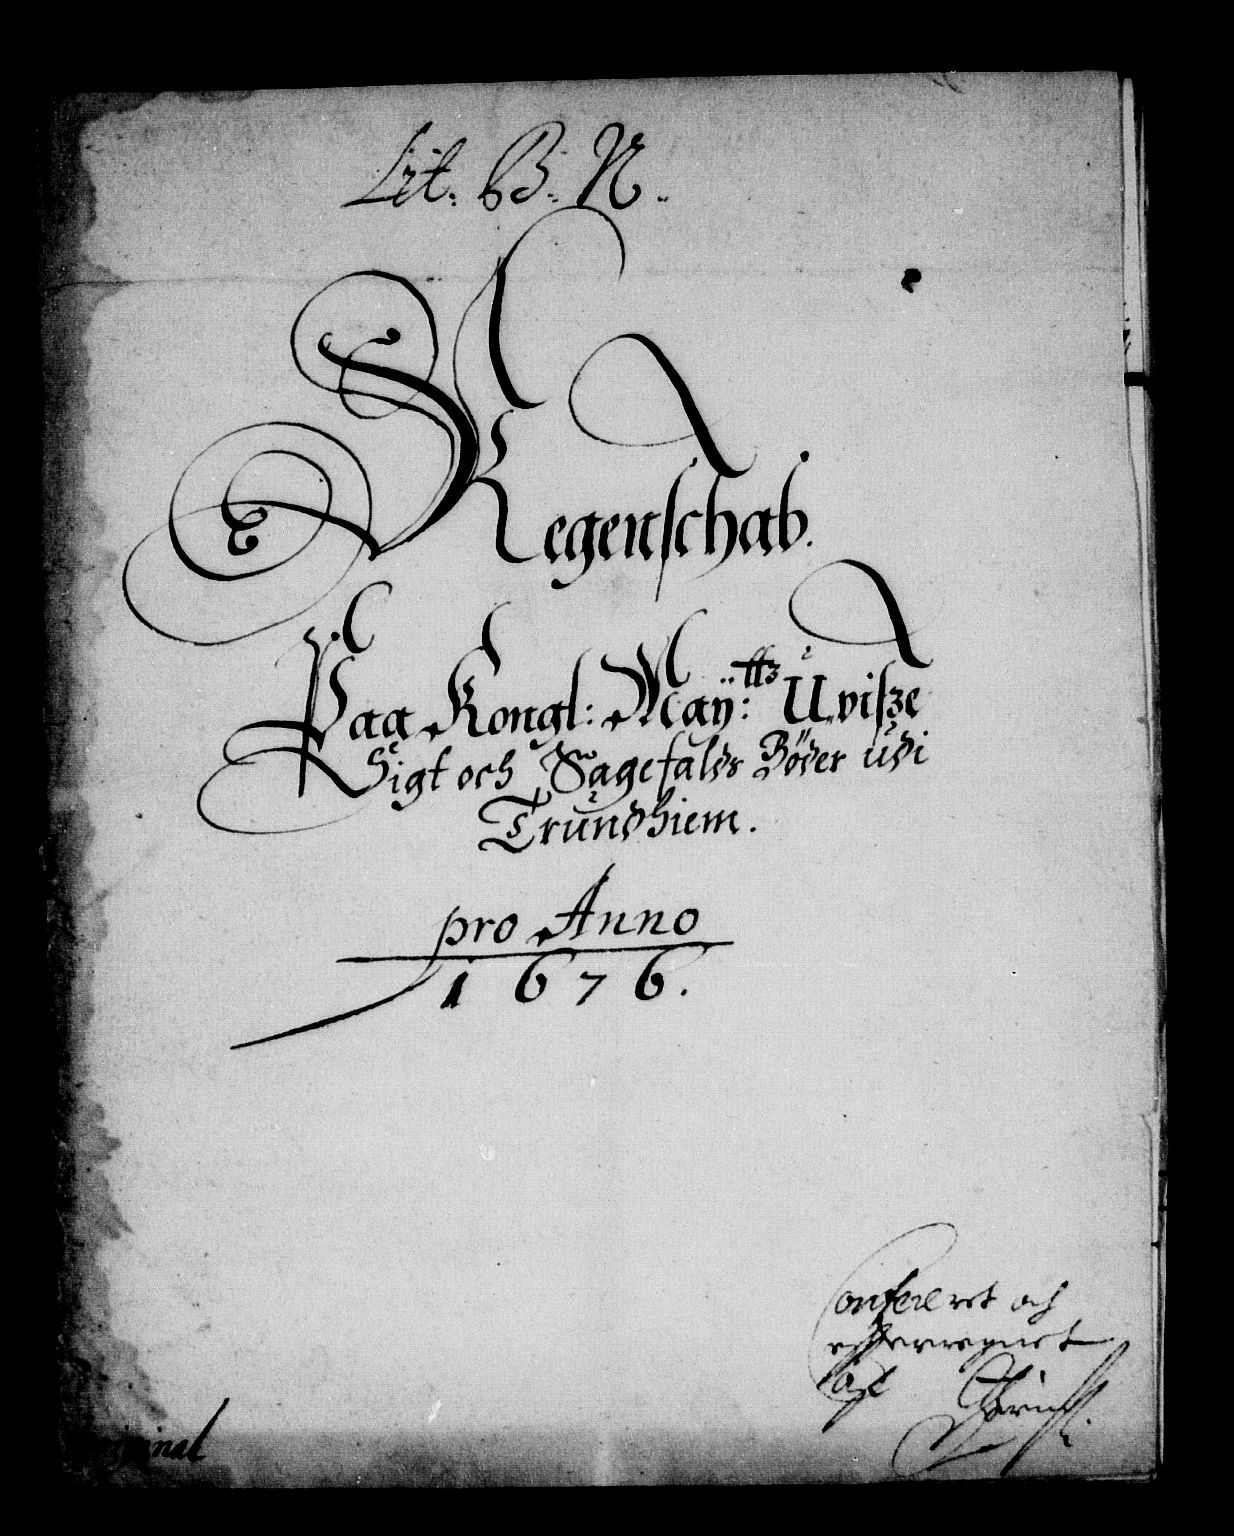 Lit. B: N.
Regenschab.
Paa Kongl: Maÿ:ttz Uvisze
Sigt och Sagefalds Böder udi
Trundhiem.
pro Anno
1676.
Confereret och
efterregnet